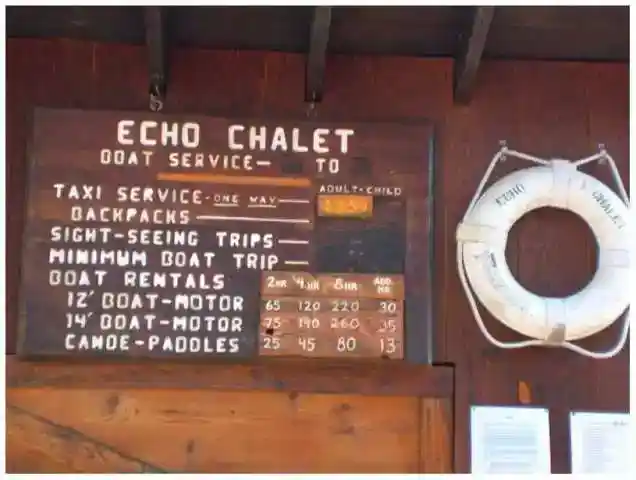 ECHO CHALET
BOAT SERVICE- TO
TAXI SERVICE-ONE WAY ADULT-CHILD
BACKPACKS
SIGHT-SEEING TRIPS
MINIMUM BOAT TRIP
BOAT RENTALS 2HR 4HR 8HR ADD. HR
12' BOAT-MOTOR 65 120 220 30
14' BOAT-MOTOR 75 140 260 35
CANOE-PADDLES 25 45 80 13
ECHO CHALET